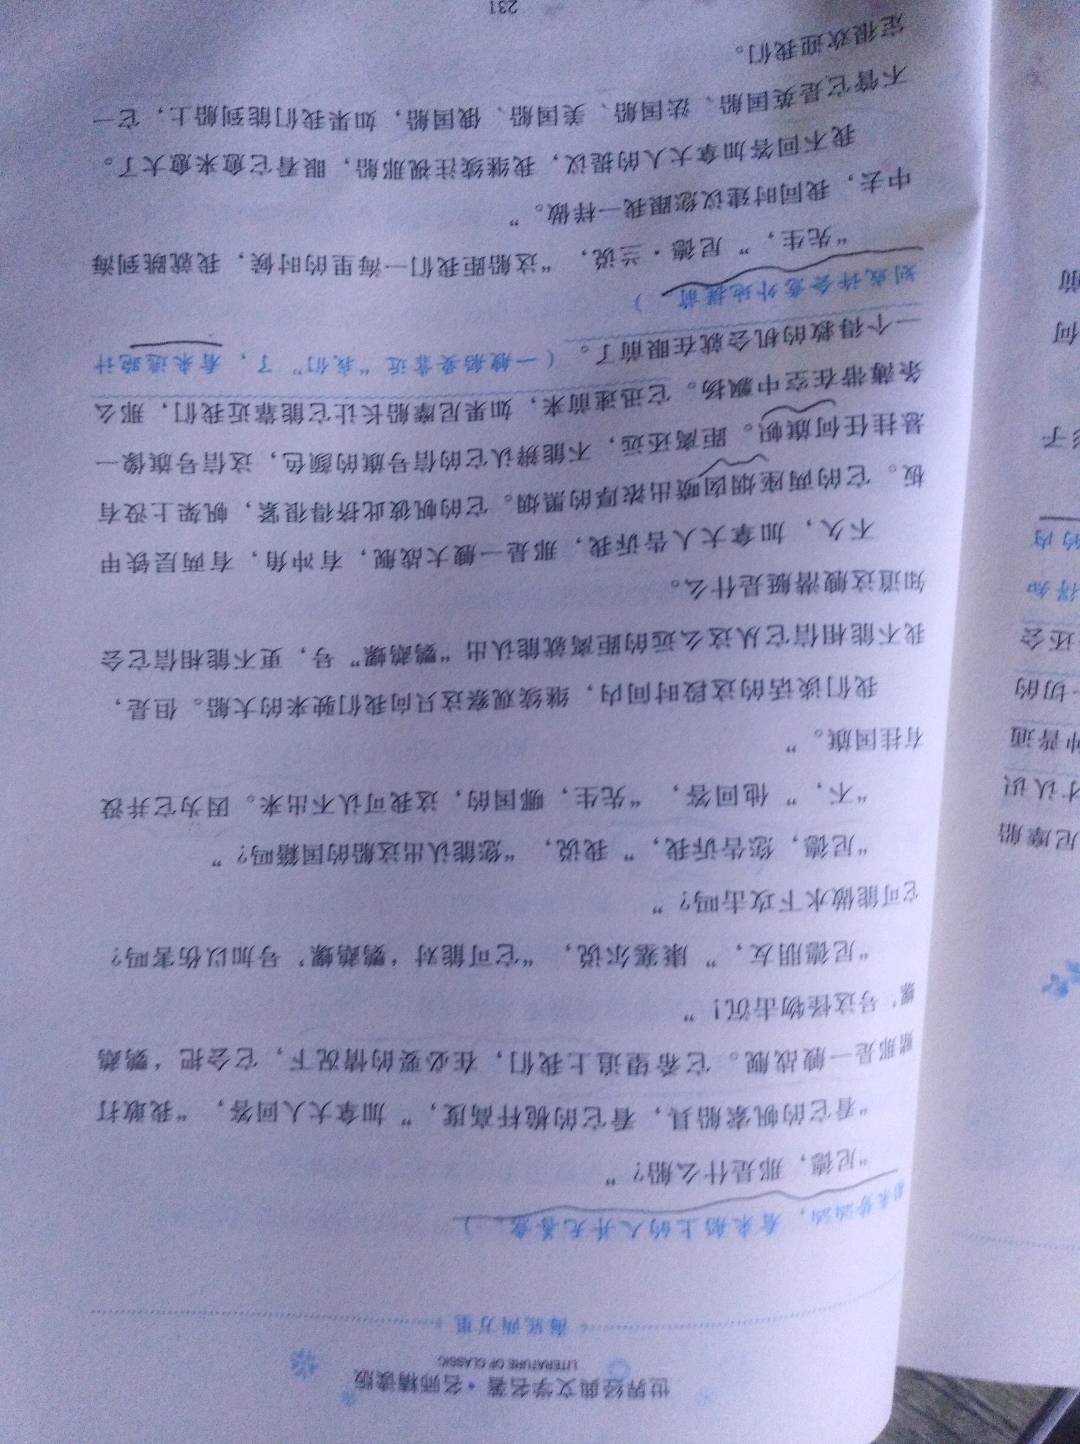 世界经典文学名著·名师精读版
LITERATURE OF CLASSIC
海底两万里
看来船上的人并无善意。）
“尼德，那是什么船？”
“看它的帆索船具，看它的桅杆高度，”加拿大人回答，“我敢打
赌那是一艘战舰。它希望追上我们，在必要的情况下，它会把‘鹦鹉
螺’号这怪物击沉！”
“尼德朋友，”康塞尔说，“它可能对‘鹦鹉螺’号加以伤害吗？
它可能做水下攻击吗？”
“尼德，您告诉我，”我说，“您能认出这船的国籍吗？”
“不，”他回答，“先生，哪国的，这我可认不出来。因为它并没
有挂国旗。”
我们谈话的这段时间内，继续观察这只向我们驶来的大船。但是，
我不能相信它从这么远的距离就能认出“鹦鹉螺”号，更不能相信它会
知道这艘潜艇是什么。
不久，加拿大人告诉我，那是一艘大战舰，有冲角，有两层铁甲
板。它的两座烟囱喷出浓厚的黑烟。它的帆彼此挤得很紧，帆架上没有
悬挂任何旗帜。距离还远，不能辨认它的信号旗的颜色，这信号旗像一
条薄带在空中飘扬。它迅速前来，如果尼摩船长让它能靠近我们，那么
一个得救的机会就在眼前了。（一艘船要靠近“我们”了，看来逃跑计
划或许会意外地提前。）
“先生，”尼德·兰说，“这船距我们一海里的时候，我就跳到海
中去，我同时建议您跟我一样做。”
我不回答加拿大人的提议，我继续注视那船，眼看它愈来愈大了。
不管它是英国船、法国船、美国船、俄国船，如果我们能到船上，它一
定很欢迎我们。
231
尼摩船
才认识
种普通
一切的
还会
得知
的内
影子
何
前